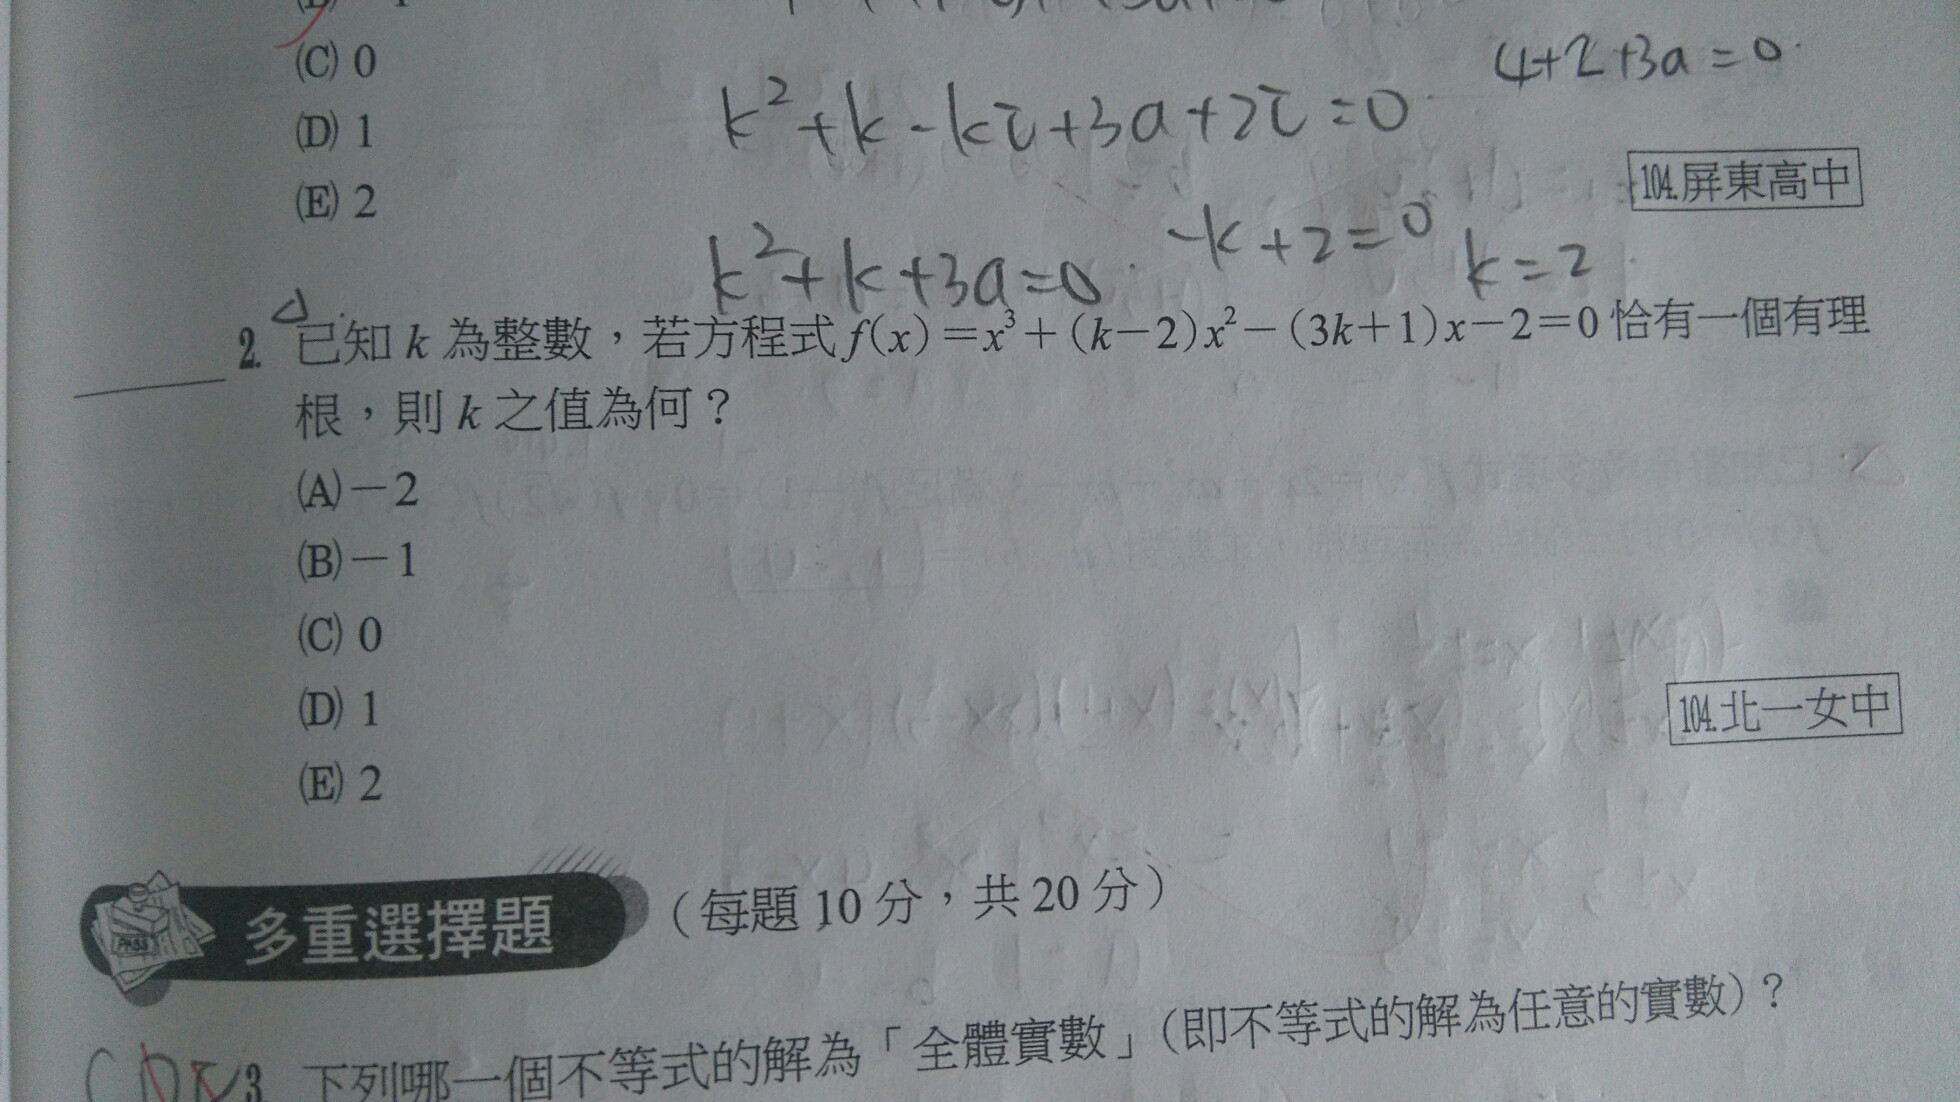 (C) 0
4+2+3a=0
(D) 1
k²+k-ki+3a+2i=0
(E) 2
104.屏東高中
k²+k+3a=0 -k+2=0 k=2
2. 已知 k 為整數，若方程式 f(x)=x³+(k-2)x²-(3k+1)x-2=0 恰有一個有理
根，則 k 之值為何？
(A)-2
(B)-1
(C) 0
(D) 1
104.北一女中
(E) 2
PASS
多重選擇題 （每題 10 分，共 20 分）
3. 下列哪一個不等式的解為「全體實數」（即不等式的解為任意的實數）？